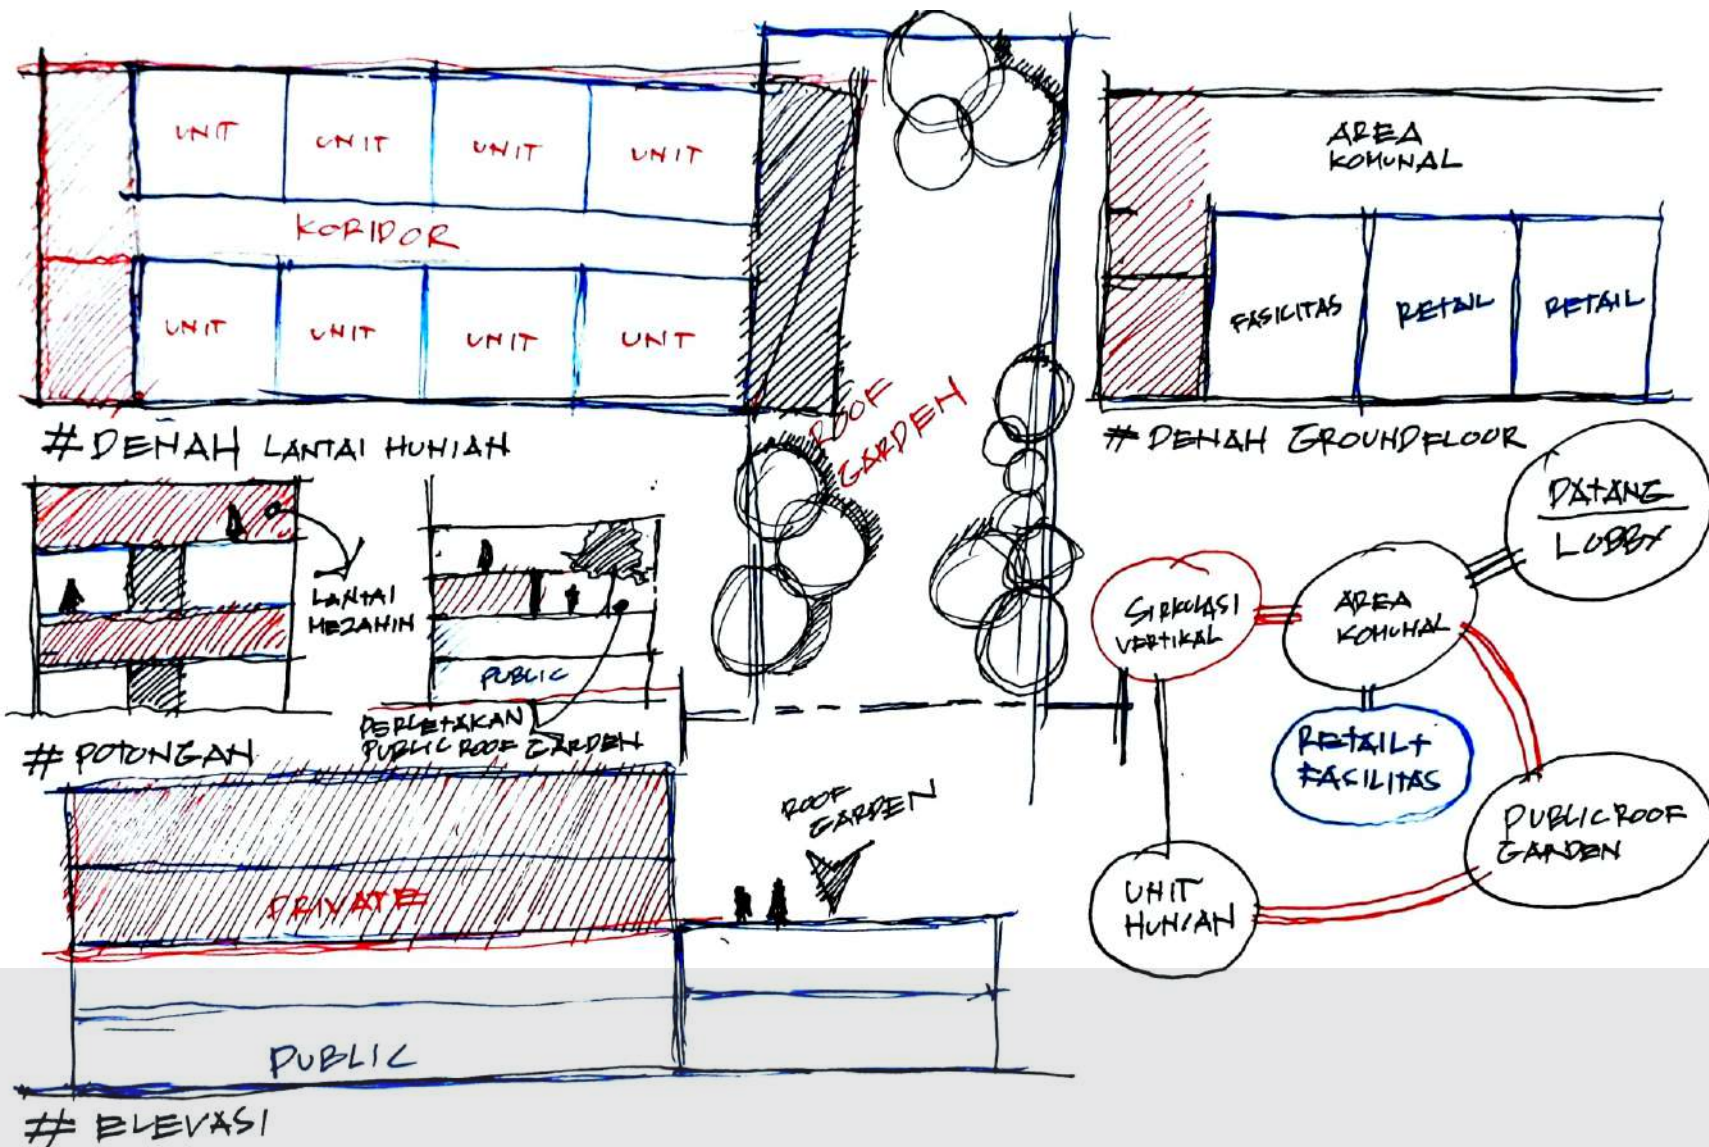 UNIT UNIT UNIT UNIT
KORIDOR
UNIT UNIT UNIT UNIT
# DENAH LANTAI HUNIAN
ROOF
GARDEN
AREA
KOMUNAL
FASILITAS RETAIL RETAIL
# DENAH GROUNDFLOOR
LANTAI
MEZANIN
PUBLIC
PERLETAKAN
PUBLIC ROOF GARDEN
# POTONGAN
DATANG
LOBBY
SIRKULASI
VERTIKAL
AREA
KOMUNAL
RETAIL +
FASILITAS
PUBLIC ROOF
GARDEN
UNIT
HUNIAN
ROOF
GARDEN
PRIVATE
PUBLIC
# ELEVASI